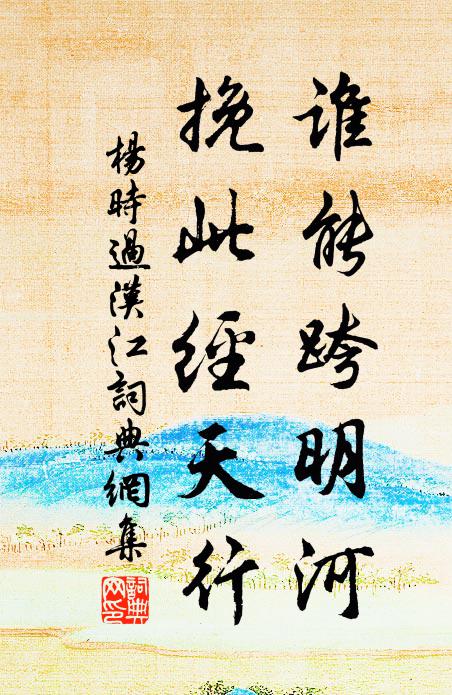 誰能跨明河
挽此經天行
楊時過漢江詞典網集
詞典網印